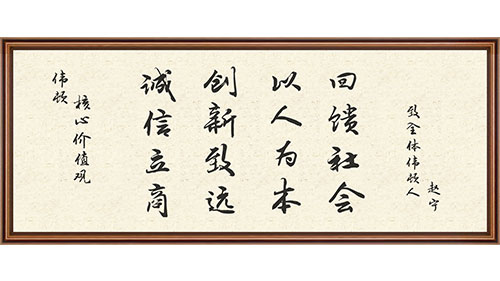 伟顿
核心价值观
诚信立商
创新致远
以人为本
回馈社会
致全体伟顿人
赵宁